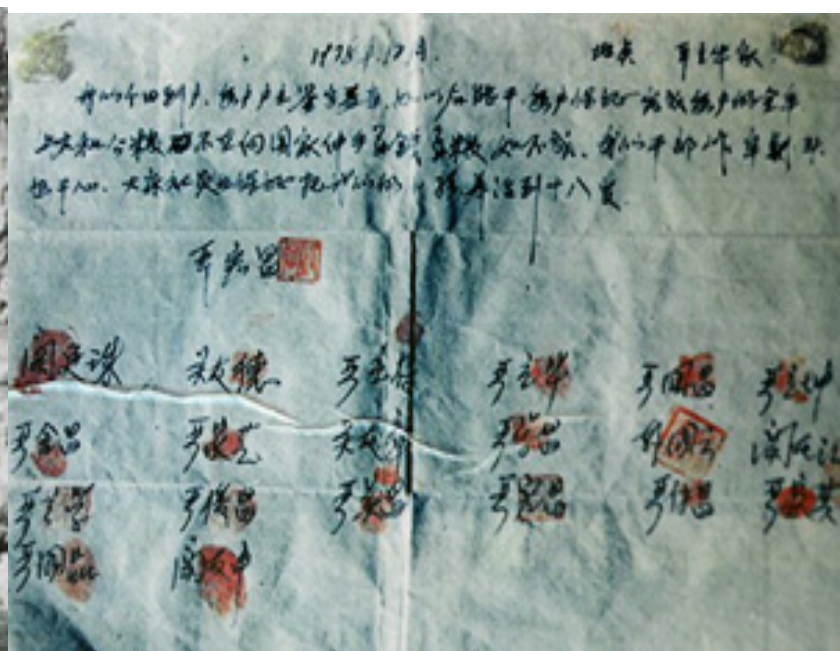 1978.12.月. 地点 严立华家
我们分田到户，每户户主签字盖章，如以后能干，每户保证完成每户的全年
上交和公粮，不在向国家伸手要钱要粮，如不成，我们干部作牢刹头
也干心，大家社员也保证把我们的小孩养活到十八岁
严宏昌
关廷珠 关友德 严立富 严立华 严国昌 严立坤
严金昌 严家芝 关友章 严学昌 韩国云 关友江
严立学 严俊昌 严美昌 严宏昌 严付昌 严家其
严国品 关友申